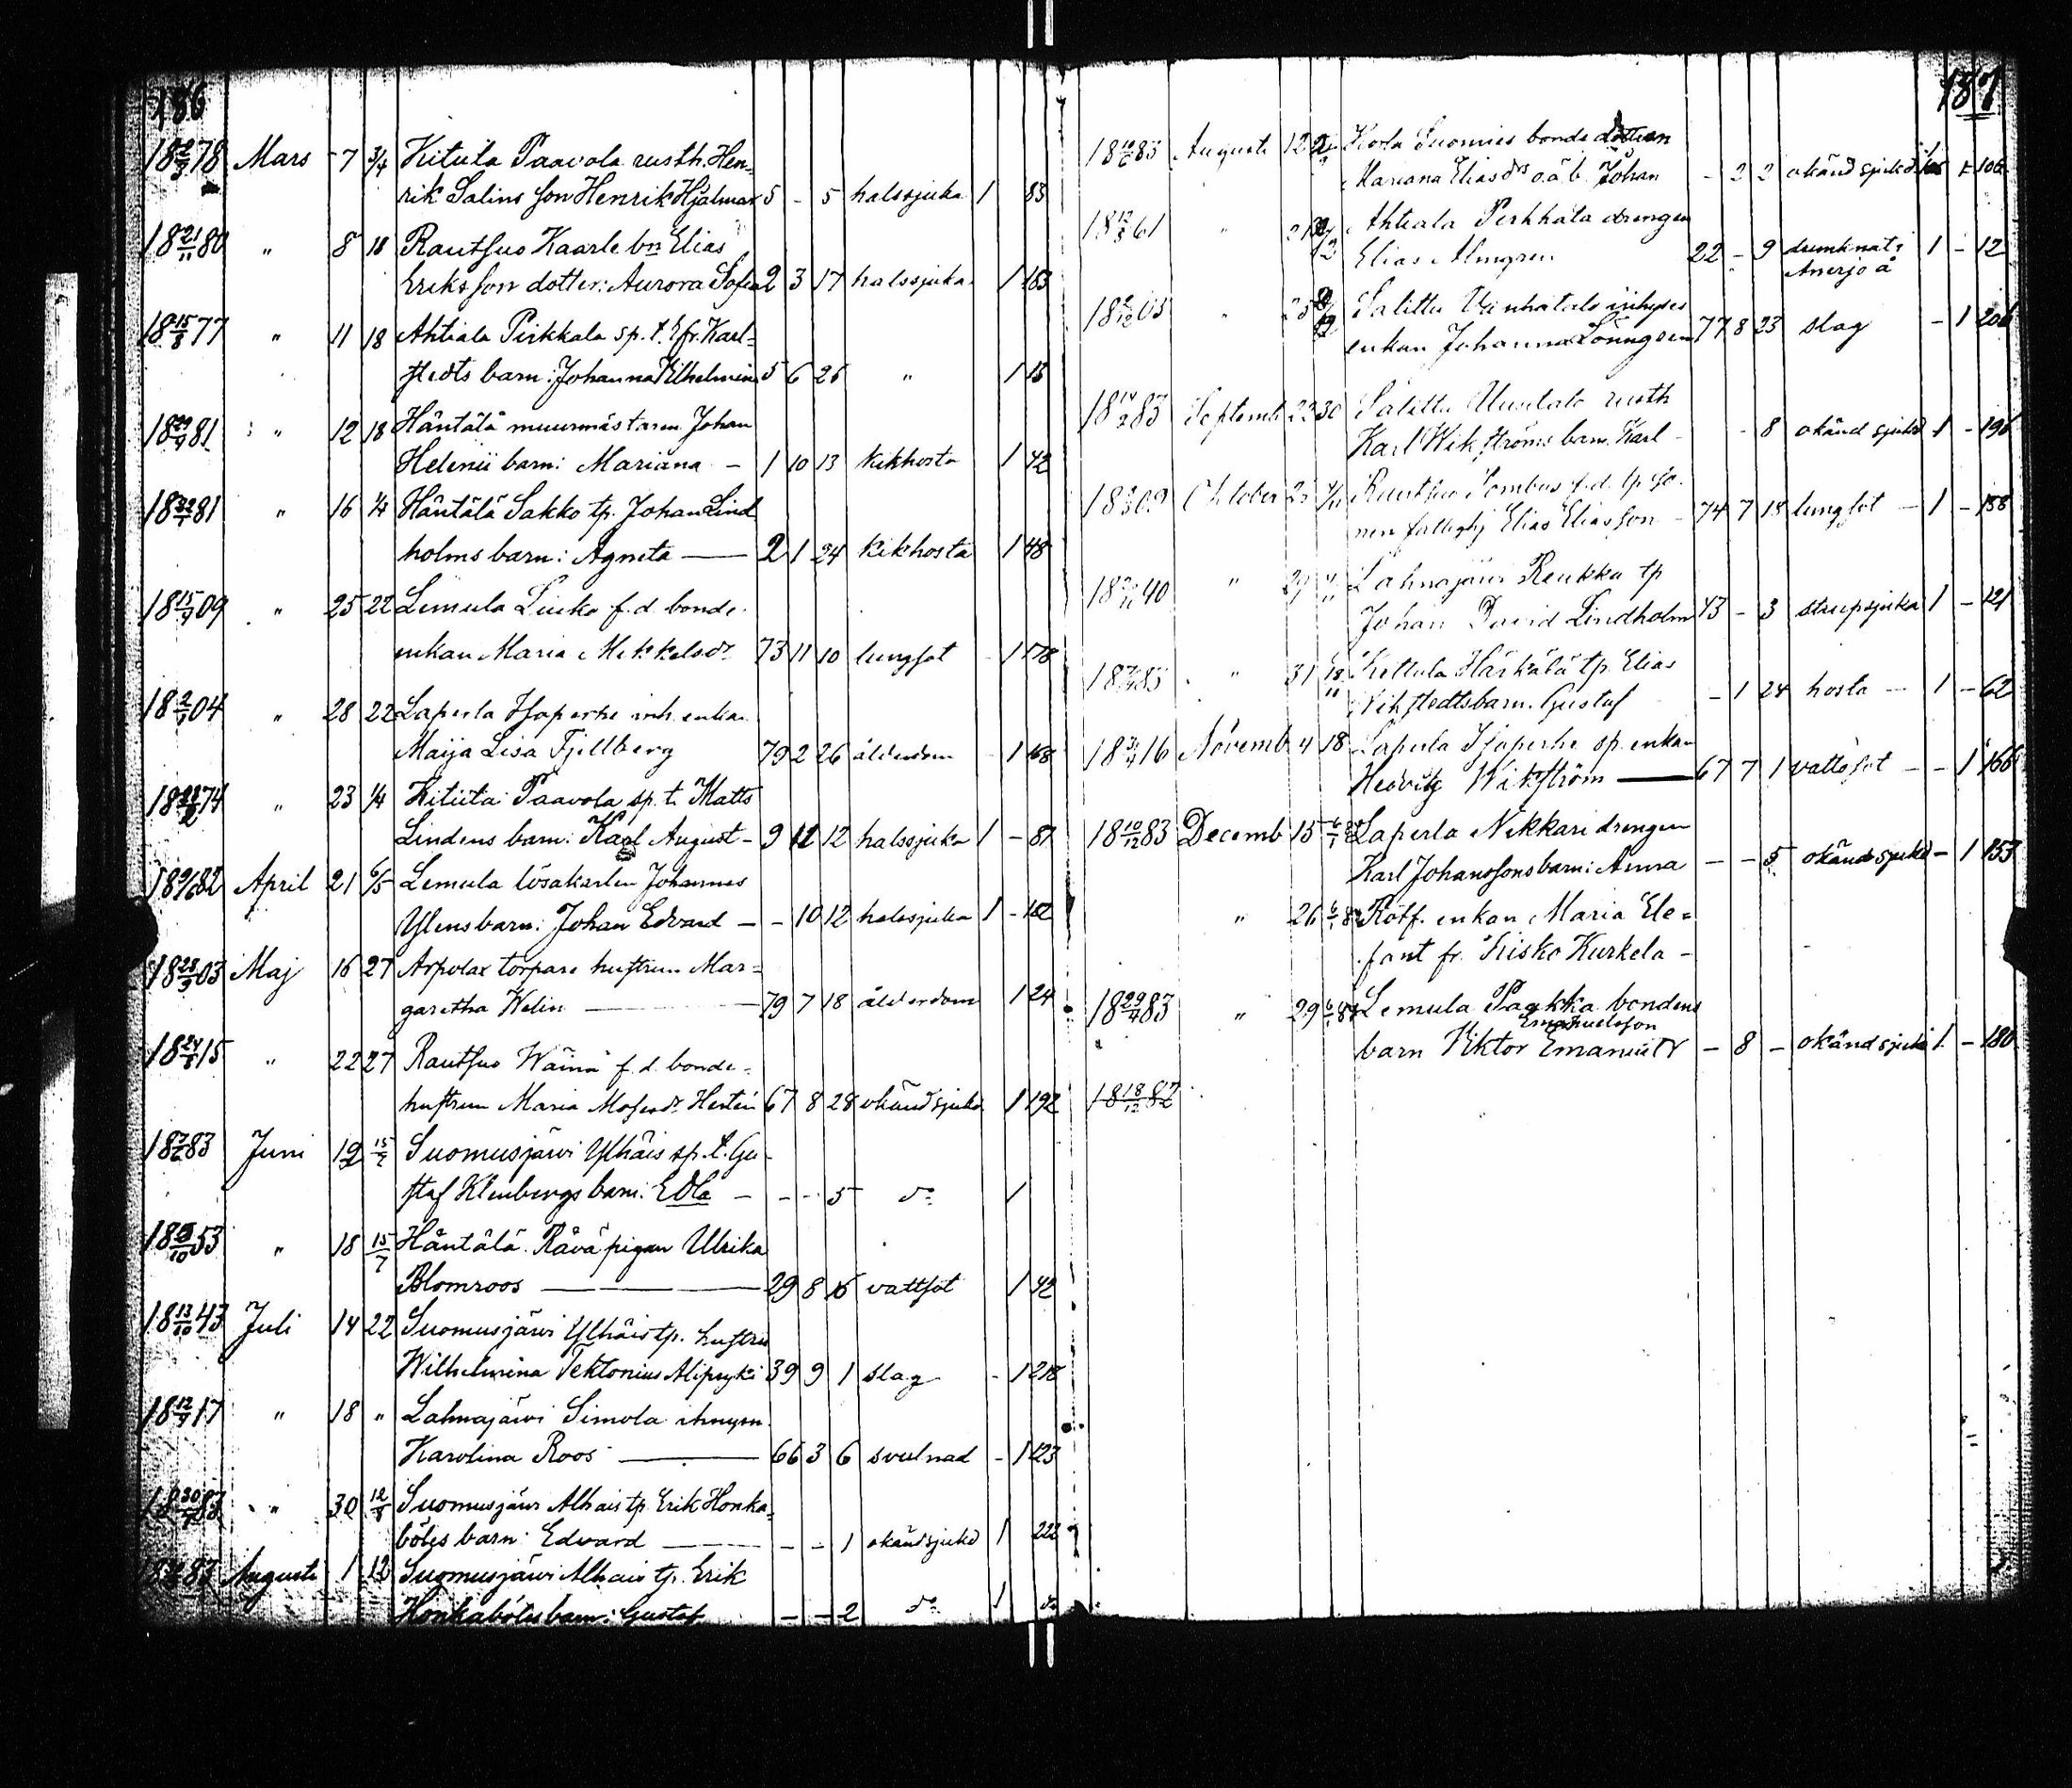 186
18 2/3 78 Mars 7 3/4 Kitula Paavola rusth. Hen-
rik Salins son Henrik Hjalmar 5 - 5 halssjuka 1 83
18 21/11 80 " 8 18 Rautsuo Kaarle bn Elias
Eriksson dotter: Aurora Sofia 2 3 17 halssjuka 1 183
18 15/8 77 " 11 18 Ahtiala Pirkkala sp. t. Efr. Karl-
stedts barn: Johanna Vilhelmina 5 6 26 " 1 15
18 29/4 81 " 12 18 Häntälä muurmästaren Johan
Helenii barn: Mariana - 1 10 13 kikhosta 1 42
18 22/1 81 " 16 1/4 Häntälä Sakko tp. Johan Lind
holms barn: Agneta — 2 1 24 kikhosta 1 48
18 15/4 09 " 25 22 Lemula f. d. bonde
enkan Maria Mikkelsdr 73 11 10 lungsot 1 178
18 2/1 04 " 28 22 Laperla inh. enkan
Maija Lisa Fjellberg 79 2 26 ålderdom 1 168
74 " 23 1/4 Kitula Paavola sp. t. Matts
Lindens barn: Karl August - 9 12 halssjuka 1 - 87
18 9/6 82 April 21 6/5 Lemula lösakarlen Johannes
Ylens barn: Johan Edvard - - 10 12 halssjuka 1 - 182
18 28/9 03 Maj 16 27 Arpolax torpare hustrun Mar-
garetha Welin — 79 7 18 ålderdom 1 24
18 24/8 15 " 22 27 Rautsuo Wäinä f. d. bonde-
hustrun Maria Mosesdr 67 8 28 okänd sjukd 1 192
18 7/6 83 Juni 12 15/7 Suomusjärvi Ylhäis sp. t. Gu-
staf Klenbergs barn: Edla - - - 5 do 1
53 " 18 15/7 Häntälä Rävä pigan Ulrika
Blomroos — 29 8 15 vattsot 1 42
18 13/10 43 Juli 14 22 Suomusjärvi Ylhäis tp. hustru
Wilhelmina Tektonius 39 9 1 slag - 1 218
18 12/4 17 " 18 " Lahnajärvi Simola
Karolina Roos — 66 3 6 svulnad - 1 123
18 30/7 83 " 30 12/8 Suomusjärvi Alhais tp. Erik Honka-
böles barn: Edvard — - - 1 okänd sjukd 1 222
83 Augusti 1 12 Suomusjärvi Alhais tp. Erik
Honkaböles barn: Gustaf - - 2 do 1 do
187
18 10/6 83 Augusti 12 Korla Suomies bonde dottern
Mariana Eliasdrs o.ä.b. Johan - 2 2 okänd sjukd 106
18 12/8 61 " 21 Ahtiala Pirkkala drengen
Elias Almgren 22 - 9 drunknat i 1 - 12
Anerjo å
05 " 25 Salittu Vanhatalo inhyses
enkan Johanna Lönngren 77 8 23 slag - 1 206
83 Septemb 22 30 Salittu Uusitalo rusth
Karl Wikströms barn Karl - - 8 okänd sjukd 1 - 196
09 October Rautsuo f. d.
fattighj Elias Eliasson - 74 7 18 lungsot - 1 - 188
40 " 29 Lahnajärvi Reukka tp
Johan David Lindholm 43 - 3 strupsjuka 1 - 121
83 " 31 18/11 Kettula Härkälä tp. Elias
Wikstedts barn. Gustaf - 1 24 hosta - 1 - 62
18 3/4 16 Novemb 4 18 Laperla sp. enkan
Hedvig Wikström — 67 7 1 vattusot - - 1 166
18 10/12 83 Decemb 15 6/1 84 Laperla Nikkari drengen
Karl Johanssons barn: Anna - - 5 okänd sjukd - 1 153
" 26 6/1 84 Rotf. enkan Maria Ele-
fant fr. Kisko Kurkela -
18 29/4 83 " 29 6/1 84 Lemula Paakka bondens
Emanuelsson
barn Viktor Emanuel - 8 - okänd sjukd 1 - 180
18 18/12 82